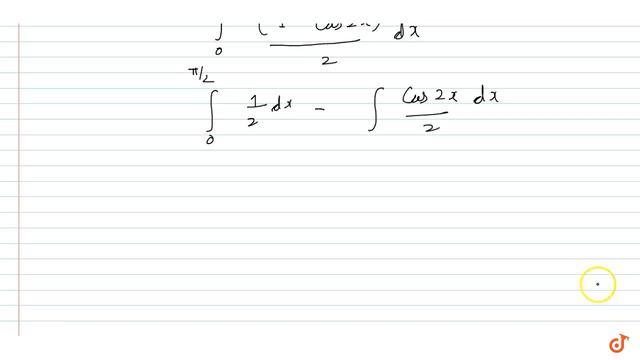 ∫₀ (1 cos 2x) / 2 dx
∫₀^(π/2) 1/2 dx - ∫ cos 2x / 2 dx